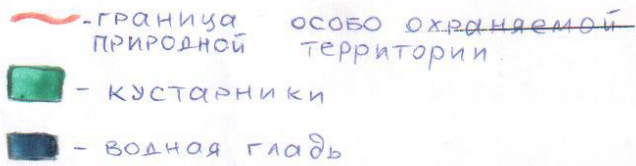 -граница особо охраняемой
природной территории
- кустарники
- водная гладь